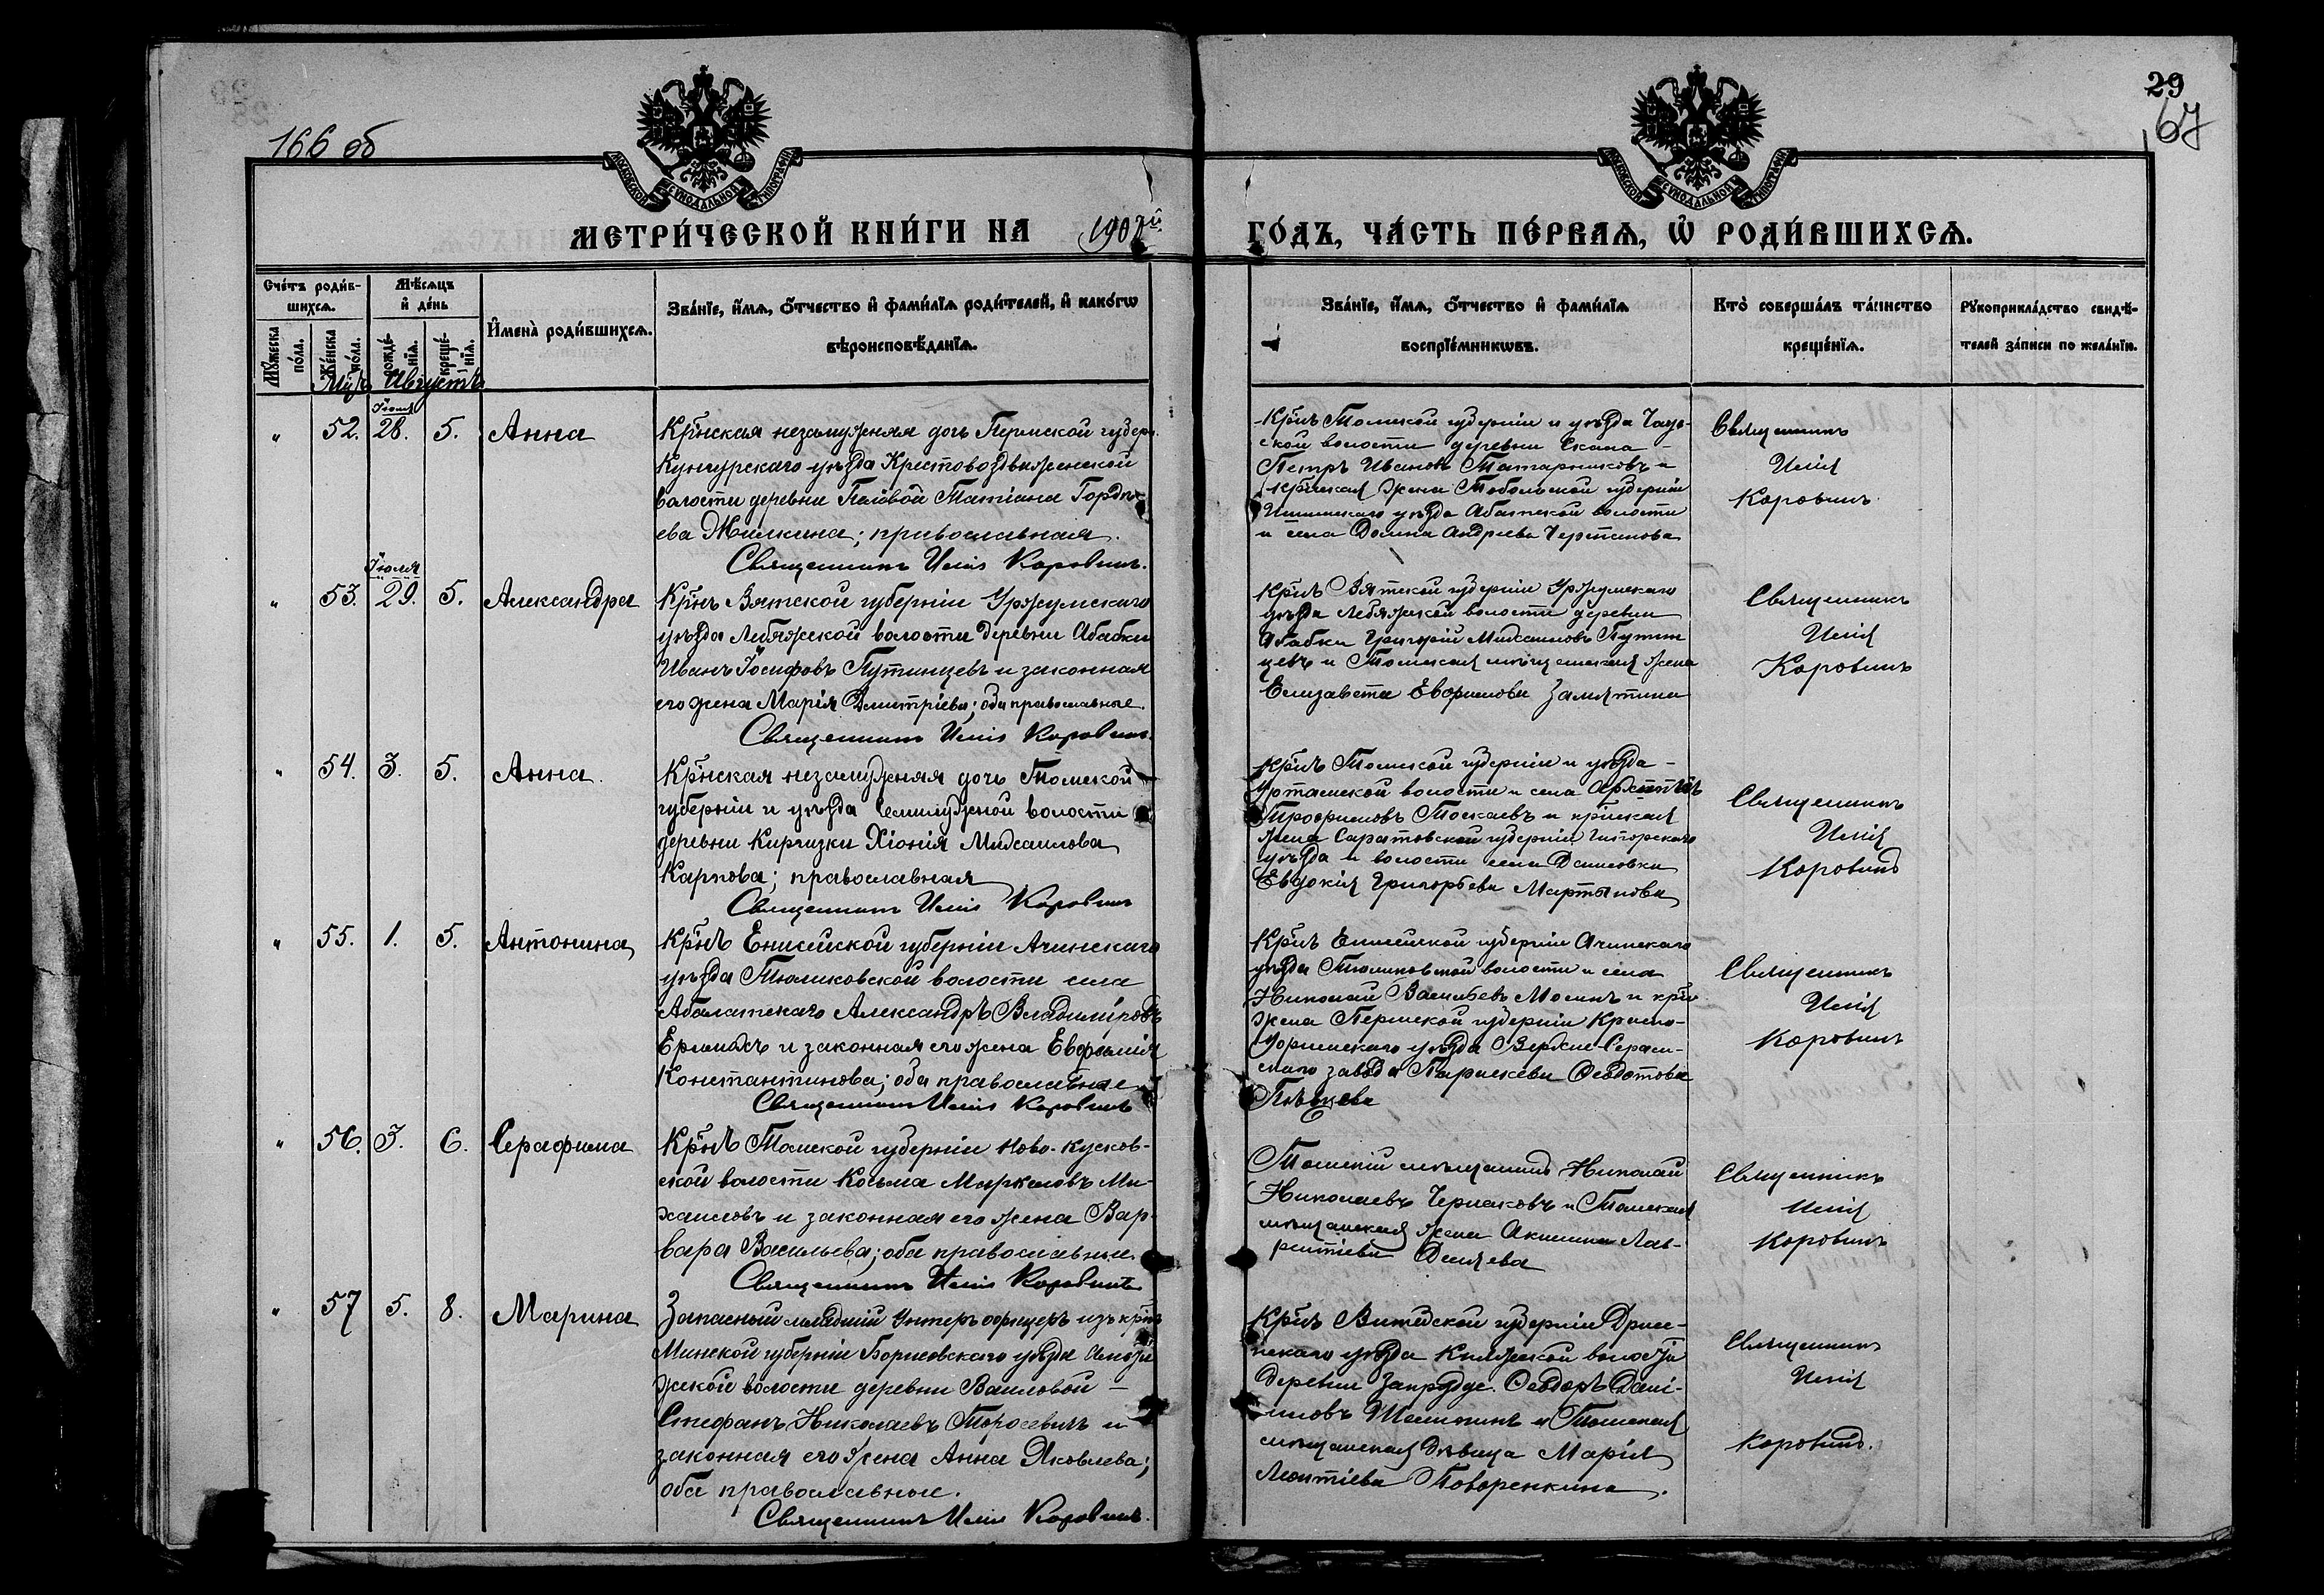 166 об
29
167
МОСКОВСКОЙ СѴНОДАЛЬНОЙ ТИПОГРАФІИ
МОСКОВСКОЙ СѴНОДАЛЬНОЙ ТИПОГРАФІИ
МЕТРИ́ЧЕСКОЙ КНИ́ГИ НА 1907й ГО́ДЪ, ЧА́СТЬ ПЕ́РВАѦ, Ѡ҆ РОДИ́ВШИХСѦ.
Сче́тъ роди́в-
шихсѧ.
Мꙋ́жеска по́ла.
Же́нска по́ла.
Мѣ́сѧцъ
и҆ де́нь
рожде́-
нїѧ.
креще́-
нїѧ.
И҆мена̀ роди́вшихсѧ.
Зва́нїе, и҆́мѧ, ѻ҆́тчество и҆ фами́лїѧ роди́телей, и҆ како́гѡ
вѣроисповѣ́данїѧ.
Зва́нїе, и҆́мѧ, ѻ҆́тчество и҆ фами́лїѧ
воспрїе́мникѡвъ.
Кто̀ соверша́лъ та́инство
креще́нїѧ.
Рꙋкоприкла́дство свидѣ́-
телей за́писи по жела́нїю.
Августъ
" 52. Іюля 28. 5. Анна
Кр̃нская незамужняя дочь Пермской губерн.
Кунгурскаго уѣзда Крестовоздвиженской
волости деревни Паловой Татіана Гордѣ-
ева Жилкина; православная.
Священникъ Илія Коровинъ.
Кр̃нъ Томской губерніи и уѣзда Чаус-
ской волости деревни Скала -
Петръ Ивановъ Татарниковъ и
кр̃нская жена Тобольской губерніи
Ишимскаго уѣзда Абатской волости
и села Домна Андреева Черепанова
Священникъ
Илія
Коровинъ
" 53. Іюля 29. 5. Александра
Кр̃нъ Вятской губерніи Уржумскаго
уѣзда Лебяжской волости деревни Абабки
Иванъ Іосифовъ Путинцевъ и законная
его жена Марія Димитріева; оба православные.
Священникъ Илія Коровинъ.
Кр̃нъ Вятской губерніи Уржумскаго
уѣзда Лебяжской волости деревни
Абабки Григорій Михаиловъ Путин
цевъ и Томская мѣщанская жена
Елизавета Евфимова Замятина
Священникъ
Илія
Коровинъ
" 54. 3. 5. Анна.
Кр̃нская незамужняя дочь Томской
губерніи и уѣзда Семилужной волости
деревни Киргизки Хіонія Михаилова
Карпова; православная
Священникъ Илія Коровинъ
Кр̃нъ Томской губерніи и уѣзда -
Уртамской волости и села
Трофимовъ Тоскаевъ и кр̃нская
жена Саратовской губерніи
уѣзда и волости села Даниловки
Евдокія Григорьева Мартынова
Священникъ
Илія
Коровинъ
" 55. 1. 5. Антонина
Кр̃нъ Енисейской губерніи Ачинскаго
уѣзда Тюликовской волости села
Александръ Владиміровъ
и законная его жена Евфимія
Константинова; оба православные
Священникъ Илія Коровинъ
Кр̃нъ Енисейской губерніи Ачинскаго
уѣзда Тюликовской волости и села
Николай Васильевъ Мосинъ и кр̃н
жена Пермской губерніи Красно-
Уфимскаго уѣзда Верхне-Серги-
скаго завода Параскева Феодотова
Священникъ
Илія
Коровинъ
" 56. 3. 6. Серафима
Кр̃нъ Томской губерніи Ново-Кусков-
ской волости Косьма Маркеловъ Ми-
хаиловъ и законная его жена Вар-
вара Васильева; оба православные.
Священникъ Илія Коровинъ
Томскій мѣщанинъ Николай
Николаевъ Чермаковъ и Томская
мѣщанская жена Акилина Лав-
рентіева Деняева
Священникъ
Илія
Коровинъ
" 57 5. 8. Марина
Запасный младшій Унтеръ офицеръ изъ кр̃нъ
Минской губерніи Борисовскаго уѣзда
жской волости деревни Вашловой -
Стефанъ Николаевъ Торосевичъ и
законная его жена Анна Яковлева;
оба православные.
Священникъ Илія Коровинъ.
Кр̃нъ Витебской губерніи Дрис-
нскаго уѣзда Княжеской волости
деревни Запрудце. Феодоръ Дані-
иловъ и Томская
мѣщанская дѣвица Марія
Леонтіева Поваренкина.
Священникъ
Илія
Коровинъ.